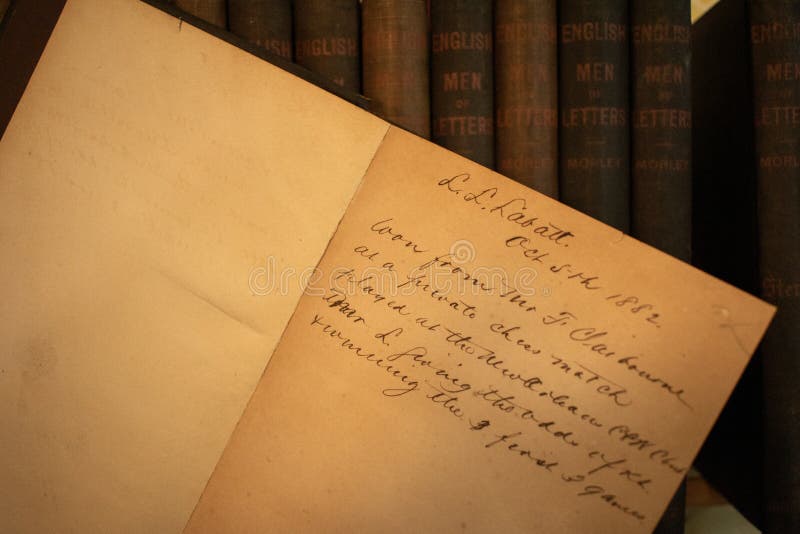 L. L. Labatt.
Oct 5th 1882.
Won from Mr F. Claibourne
at a private chess match
played at the New Orleans Club
L giving the odds of Kt
& winning the 3 first 3 games
ENGLISH
MEN
OF
LETTERS
MORLEY
ENGLISH
MEN
OF
LETTERS
MORLEY
ENGLISH
MEN
OF
LETTERS
MORLEY
ENGLISH
MEN
OF
LETTERS
MORLEY
dreamstime
dreamstime